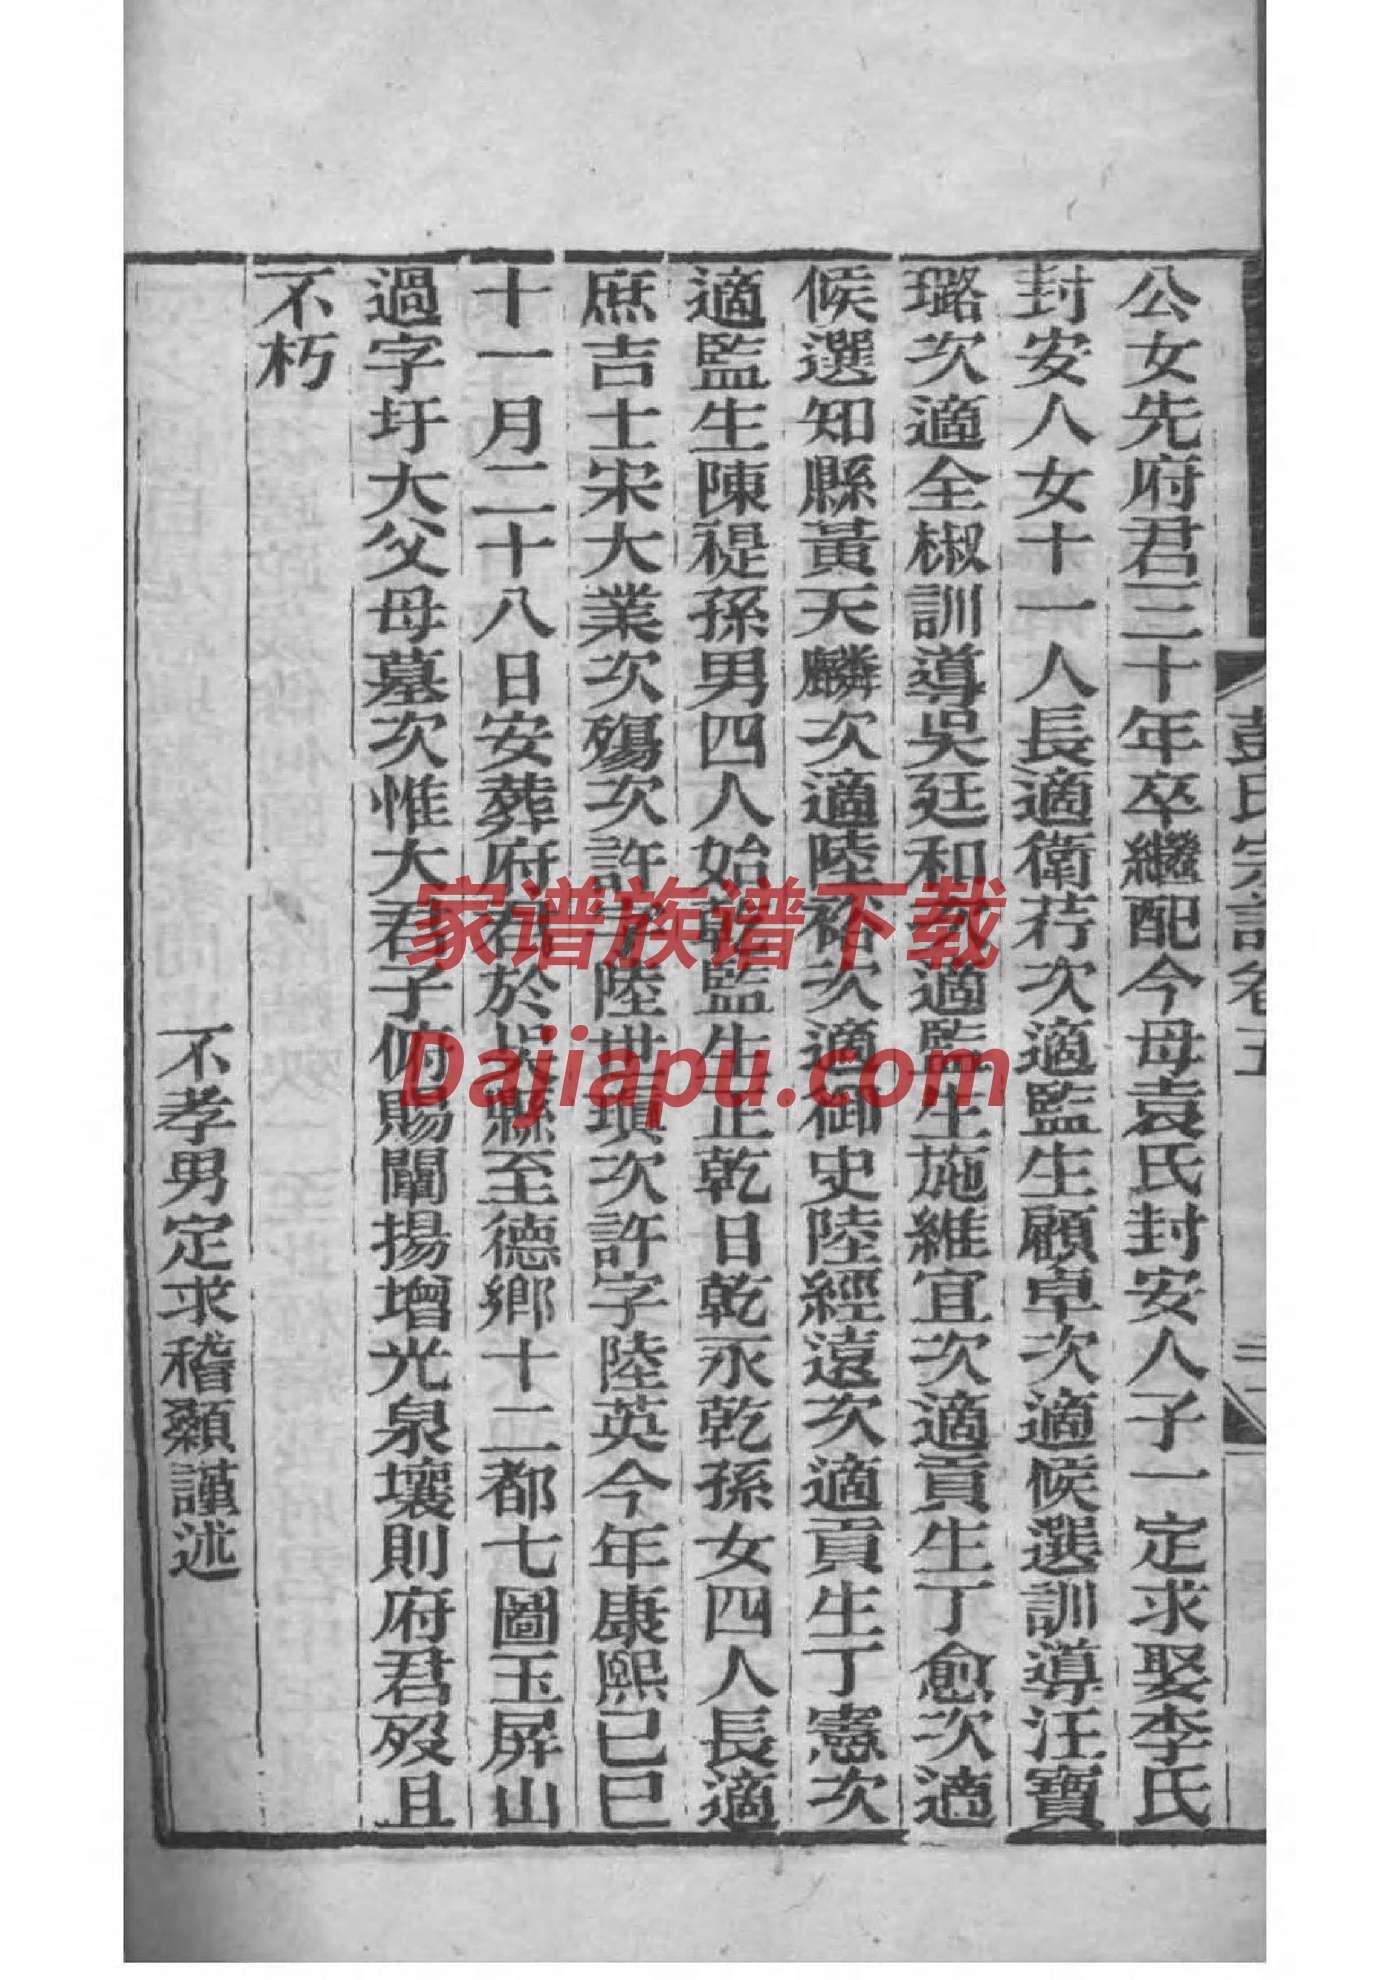 公女先府君三十年卒繼配今母袁氏封安人子一定求娶李氏
封安人女十一人長適衛荇次適監生顧卓次適候選訓導汪寶
璐次適全椒訓導吳廷和次適監生施維宜次適貢生丁愈次適
候選知縣黃天麟次適陸裕次適御史陸經遠次適貢生丁憲次
適監生陳禔孫男四人始乾監生正乾日乾永乾孫女四人長適
庶吉士宋大業次殤次許字陸世瑱次許字陸英今年康熙己巳
十一月二十八日安葬府君於吳縣至德鄉十二都七圖玉屏山
過字圩大父母墓次惟大君子俯賜闡揚增光泉壤則府君歿且
不朽
不孝男定求稽顙謹述
彭氏宗譜卷五
家谱族谱下载
Dajiapu.com